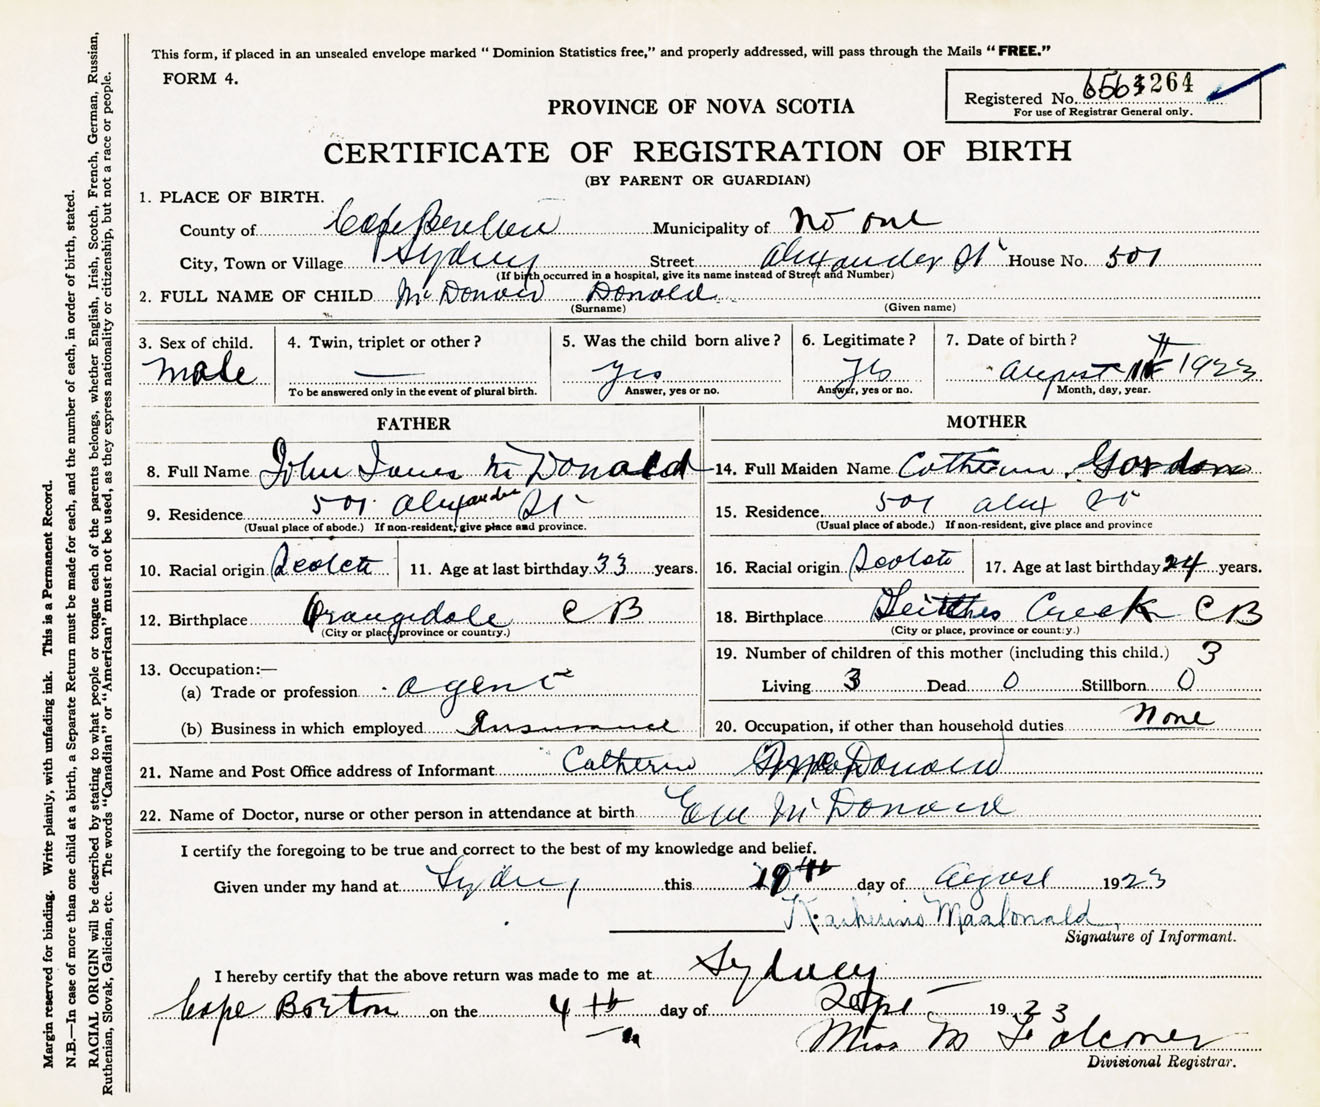 This form, if placed in an unsealed envelope marked “Dominion Statistics free,” and properly addressed, will pass through the Mails “FREE.”
FORM 4.
Registered No. 264
For use of Registrar General only.
PROVINCE OF NOVA SCOTIA
CERTIFICATE OF REGISTRATION OF BIRTH
(BY PARENT OR GUARDIAN)
1. PLACE OF BIRTH.
County of Cape Breton Municipality of No one
City, Town or Village Sydney Street Alexander St House No. 501
(If birth occurred in a hospital, give its name instead of Street and Number)
2. FULL NAME OF CHILD McDonald Donald
(Surname) (Given name)
3. Sex of child. 4. Twin, triplet or other? 5. Was the child born alive? 6. Legitimate? 7. Date of birth?
Male — yes yes August 1923
To be answered only in the event of plural birth. Answer, yes or no. Answer, yes or no. Month, day, year.
FATHER MOTHER
8. Full Name John James McDonald 14. Full Maiden Name Gordon
9. Residence 501 Alexander St 15. Residence 501 Alex St
(Usual place of abode.) If non-resident, give place and province. (Usual place of abode.) If non-resident, give place and province
10. Racial origin Scotch 11. Age at last birthday 33 years. 16. Racial origin Scotch 17. Age at last birthday 24 years.
12. Birthplace Orangedale C B 18. Birthplace Creek C B
(City or place, province or country.) (City or place, province or country.)
13. Occupation:— 19. Number of children of this mother (including this child.) 3
(a) Trade or profession agent Living 3 Dead 0 Stillborn 0
(b) Business in which employed Insurance 20. Occupation, if other than household duties None
21. Name and Post Office address of Informant Catherine McDonald
22. Name of Doctor, nurse or other person in attendance at birth McDonald
I certify the foregoing to be true and correct to the best of my knowledge and belief.
Given under my hand at Sydney this day of August 1923
Katherine MacDonald
Signature of Informant.
I hereby certify that the above return was made to me at Sydney
Cape Breton on the 4th day of Sept 1923
Miss M Falconer
Divisional Registrar.
Margin reserved for binding. Write plainly, with unfading ink. This is a Permanent Record.
N.B.—In case of more than one child at a birth, a Separate Return must be made for each, and the number of each, in order of birth, stated.
RACIAL ORIGIN will be described by stating to what people or tongue each of the parents belongs, whether English, Irish, Scotch, French, German, Russian,
Ruthenian, Slovak, Galician, etc. The words “Canadian” or “American” must not be used, as they express nationality or citizenship, but not a race or people.